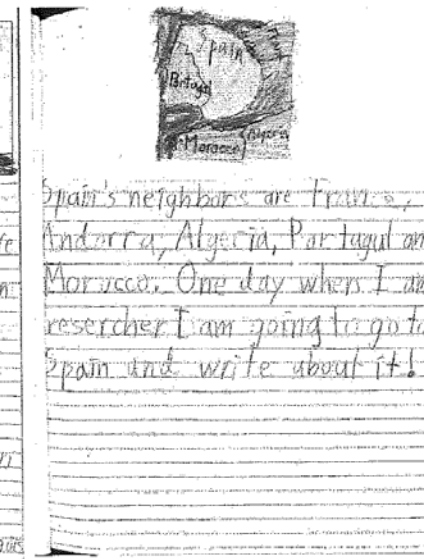 Spain
Portugl
Morocco
Algeria
Spain's neighbors are France,
Andorra, Algeria, Partugul an
Morocco. One day when I am
resercher I am going to go to
Spain and write about it!